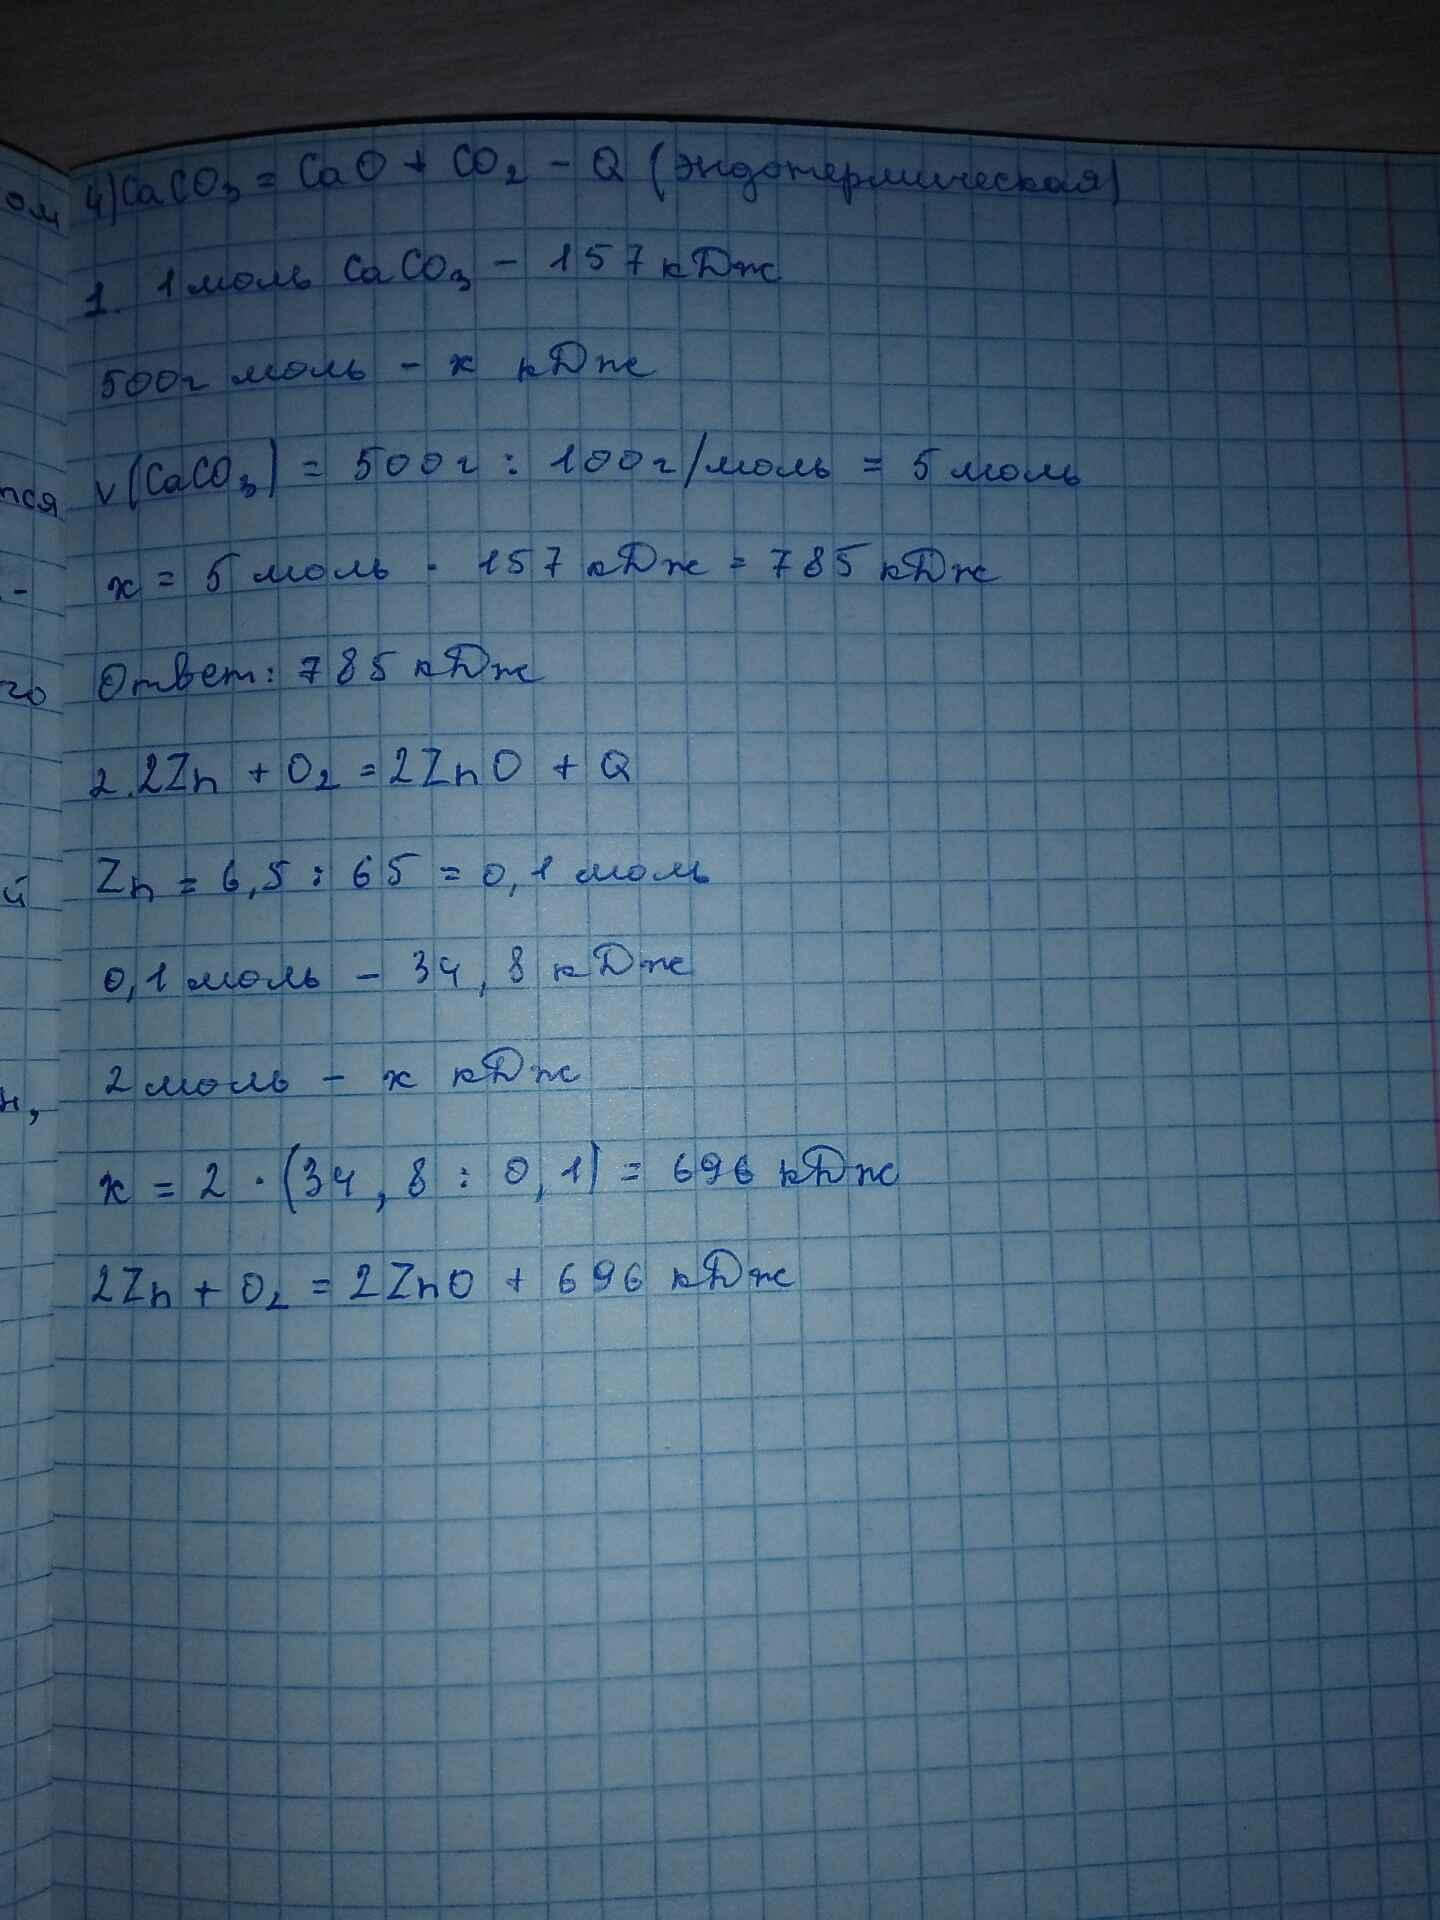 4) CaCO3 = CaO + CO2 - Q (эндотермическая)
1. 1 моль CaCO3 - 157 кДж
500г моль - х кДж
ν(CaCO3) = 500г : 100г/моль = 5 моль
х = 5 моль · 157 кДж = 785 кДж
Ответ: 785 кДж
2. 2Zn + O2 = 2ZnO + Q
Zn = 6,5 : 65 = 0,1 моль
0,1 моль - 34,8 кДж
2 моль - х кДж
х = 2 · (34,8 : 0,1) = 696 кДж
2Zn + O2 = 2ZnO + 696 кДж